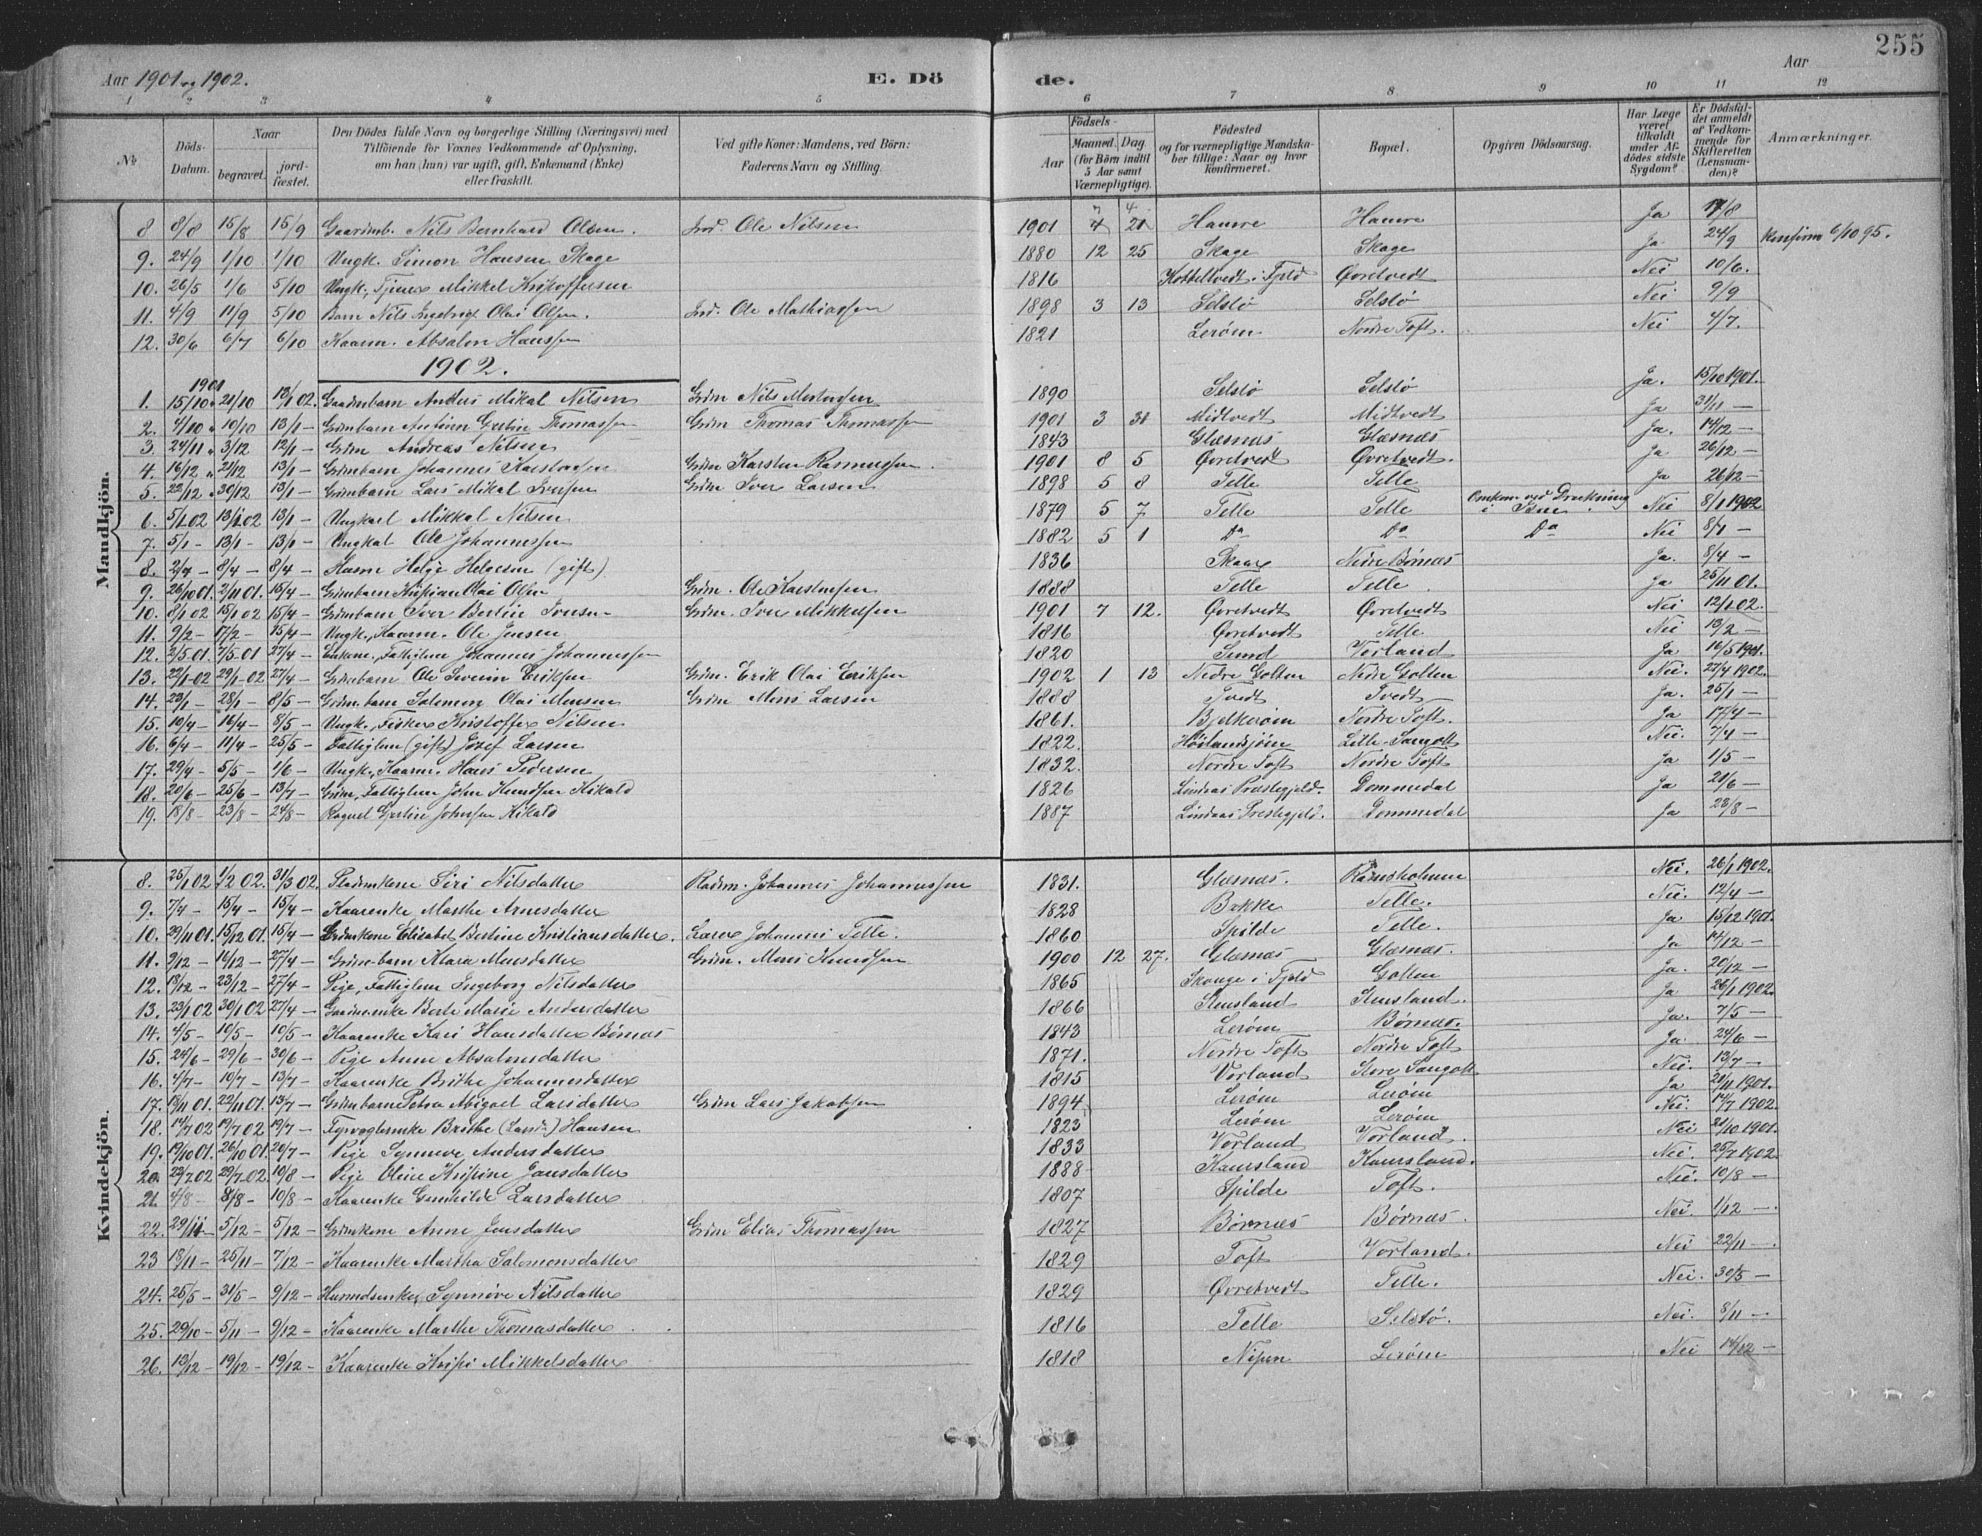 255
Aar 1901 og 1902. E. Dö de. Aar
1 2 3 4 5 6 7 8 9 10 11 12
№ Döds-Datum. Naar begravet. jord-fæstet. Den Dödes fulde Navn og borgerlige Stilling (Næringsvei) med Tilföiende for Voxnes Vedkommende af Oplysning, om han (hun) var ugift, gift, Enkemand (Enke) eller fraskilt. Ved gifte Koner: Mandens, ved Börn: Faderens Navn og Stilling. Födsels- Aar Maaned. Dag. (for Börn indtil 5 Aar samt Værnepligtige). Födested og for værnepligtige Mandskaber tillige: Naar og hvor konfirmeret. Bopæl. Opgiven Dödsaarsag. Har Læge været tilkaldt under Afdödes sidste Sygdom? Er Dödsfaldet anmeldt af Vedkommende for Skifteretten (Lensmanden)? Anmærkninger.
Mandkjön.
8 8/8 15/8 15/9 Gaardmb. Nils Bernhard Olsen. Ind. Ole Nilsen 1901 Hamre Hamre Ja
9. 24/9 1/10 1/10 Ungk. Simon Hansen Skage 1880 12 25 Skage Skage Ja 24/9 Konfirm 6/10 95.
10. 26/5 1/6 5/10 Ungk., Tjener Mikkel Kristoffersen 1816 Kottelvedt i Fjeld Øvretvedt Nei 10/6.
11. 4/9 11/9 5/10 Barn Nils Olai Olsen. Ind. Ole Mathiassen 1898 3 13 Selstö Selstö Nei 9/9
12. 30/6 6/7 6/10 Kaarm. Absalon Hanssen 1821 Lerøm Nordre Toft. Nei 4/7.
1902.
1901
1. 15/10 " 21/10 13/1 02. Gaardmbarn Anders Mikal Nilsen Grdm Nils Mortensen 1890 Selstö Selstö Ja. 15/10 1901.
2. 4/10 " 10/10 13/1 — Grdmbarn Thomassen Grdm Thomas Thomassen 1901 3 Midtvedt Midtvedt Ja —
3. 24/11 " 3/12 12/1 — Grdm Andreas Nilsen 1843 Glæsnæs Glæsnæs Ja. 14/12 —
4. 16/12 " 21/12 13/1 — Grdmbarn Johannes Karstensen Grdm Karsten Rasmussen. 1901 8 5 Øvretvedt Øvretvedt. Ja 26/12 —
5. 22/12 " 30/12 13/1 — Grdmbarn Lars Mikal Iversen Grdm Iver Larsen 1898 5 8 Telle Telle Ja 26/12 —
6. 5/1 02 13/1 02 13/1 — Ungkarl Mikkal Nilsen 1879 5 7 Telle Telle Omkom ved Drukning i Nei 8/1 1902
7. 5/1 — 13/1 — 13/1 — Ungkal Ole Johannessen 1882 5 1 Do Do Do Nei 8/1 —
8. 2/4 — 8/4 — 8/4 — Husm Helge Helgesen (gift) 1836 Skaar Nedre Børnæs Ja. 8/4 —
9. 26/10 01. 2/11 01. 15/4 — Grdmbarn Kristian Olai Olsen Grdm. Ole Karstensen 1888 Telle Telle. Ja 25/11 01.
10. 8/1 02 15/1 02 15/4 — Grdmbarn Iver Bertin Iversen Grdm. Iver Mikkelsen 1901 7 12. Øvretvedt Øvretvedt Nei 12/1 02.
11. 9/2 — 17/2 — 15/4 — Ungk., Kaarm. Ole Jensen 1816 Øvretvedt Telle Nei 13/2 —
12. 2/5 01. 7/5 01 27/4 — Enkem., Fattiglem Johannes Johannessen 1820 Sund Vorland Ja 16/5 1901.
13. 22/1 02 29/1 02 27/4 — Grdmbarn Ole Severin Eriksen Grdm. Erik Olai Eriksen 1902 1 13 Nedre Golten Nedre Golten Nei. 27/4 1902.
14. 23/1 — 28/1 — 8/5 — Grdm.barn Salomon Olai Monsen Grdm Mons Larsen 1888 Tvedt Tvedt Ja. 25/1 —
15. 10/4 — 16/4 — 8/5 — Ungk., Fisker Kristoffer Nilsen 1861. Bjelkerøm Nordre Toft. Ja 17/4 —
16. 6/4 — 11/4 — 25/5 — Fattiglem (gift) Jozef Larsen 1822. Lille-Sangolt Nei. 7/4 —
17. 29/4 — 5/5 — 1/6 — Ungk., Kaarm. Hans Pedersen 1832. Nordre Toft Nordre Toft Ja 1/5 —
18. 20/6 — 25/6 — 13/7 — Grdm., Fattiglem John Knudsen Kikald 1826 Lindaas Præstegjeld. Dommedal Ja 21/6 —
19. 18/8 — 23/8 — 24/8 — Ragnel Gertine Johnsen Kikald 1887 Lindaas Prestegjeld. Dommedal Ja 23/8 —
Kvindekjön.
8. 25/1 02 1/2 02. 31/3 02. Siri Nilsdatter Johannes Johannessen 1831. Glæsnæs. Ramsholmen Nei. 26/1 1902.
9. 7/4 — 15/4 — 15/4 — Kaarenke Marthe Arnesdatter 1828 Bakke Telle. Nei. 12/4 —
10. 29/11 01. 15/12 01. 15/4 — Grdmkone Elisabet Bertine Kristiansdatter. Lærer Johannes Telle. 1860 Spilde Telle. Ja 15/12 1901.
11. 9/12 — 16/12 — 27/4 — Grdm-barn Klara Monsdatter Grdm. Mons Knudsen 1900 12 27. Glæsnæs Glæsnæs. Ja 14/12 —
12. 18/12 — 23/12 — 27/4 — Pige, Fattiglem Ingeborg Nilsdatter 1865 Skouge i Fjeld Golten Ja. 20/12 —
13. 23/1 02 30/1 02 27/4 — Gaardmenke Berte Marie Andersdatter 1866 Steusland Steusland. Ja 26/1 1902.
14. 4/5 — 10/5 — 10/5 — Kaarenke Kari Hansdatter Børnæs 1843 Lerøm Børnæs. Ja. 7/5 —
15. 24/6 — 29/6 — 30/6 — Pige Anne Absalonsdatter 1871. Nordre Toft Nordre Toft Ja. 24/6 —
16. 4/7 — 10/7 — 13/7 — Kaarenke Brithe Johannesdatter 1815 Vorland Store Sangolt Nei. 13/7 —
17. 18/11 01. 22/11 01. 13/7 — Grdmbarn Petra Abigael Larsdatter Grdm Lars Jakobsen 1894 Lerøm Lerøm Ja 20/11 1901.
18. 14/7 02 19/7 02 19/7 — Brithe Hansen 1823 Lerøm Lerøm Nei. 14/7 1902.
19. 19/10 01. 26/10 01. 20/7 — Pige Synneve Andersdatter 1833 Vorland Vorland. Nei 21/10 1901.
20. 22/7 02 29/7 02. 10/8 — Pige Oline Kristine Jansdatter 1888 Kaursland Kaursland. Nei. 25/7 1902
21. 4/8 — 8/8 — 10/8 — Kaarenke Gunhilde Larsdatter 1807 Spilde Toft. Nei. 10/8 —
22. 29/11 — 5/12 — 5/12 — Grdmkone Anne Jonsdatter Grdm Elias Thomassen 1827 Børnæs Børnæs. Nei. 1/12 —
23 18/11 — 25/11 — 7/12 — Kaarenke Martha Salomonsdatter 1829 Toft Vorland. Nei 22/11 —
24. 25/5 — 31/5 — 9/12 — Husmdsenke Synnøve Nilsdatter 1829 Øvretvedt Telle. Nei. 30/5 —
25. 29/10 — 5/11 — 9/12 — Kaarenke Marthe Thomasdatter 1816 Telle Selstö. Nei. 8/11 —
26. 13/12 — 19/12 — 19/12 — Kaarenke Kristi Mikkelsdatter 1818 Nipen Lerøm Nei 14/12 —